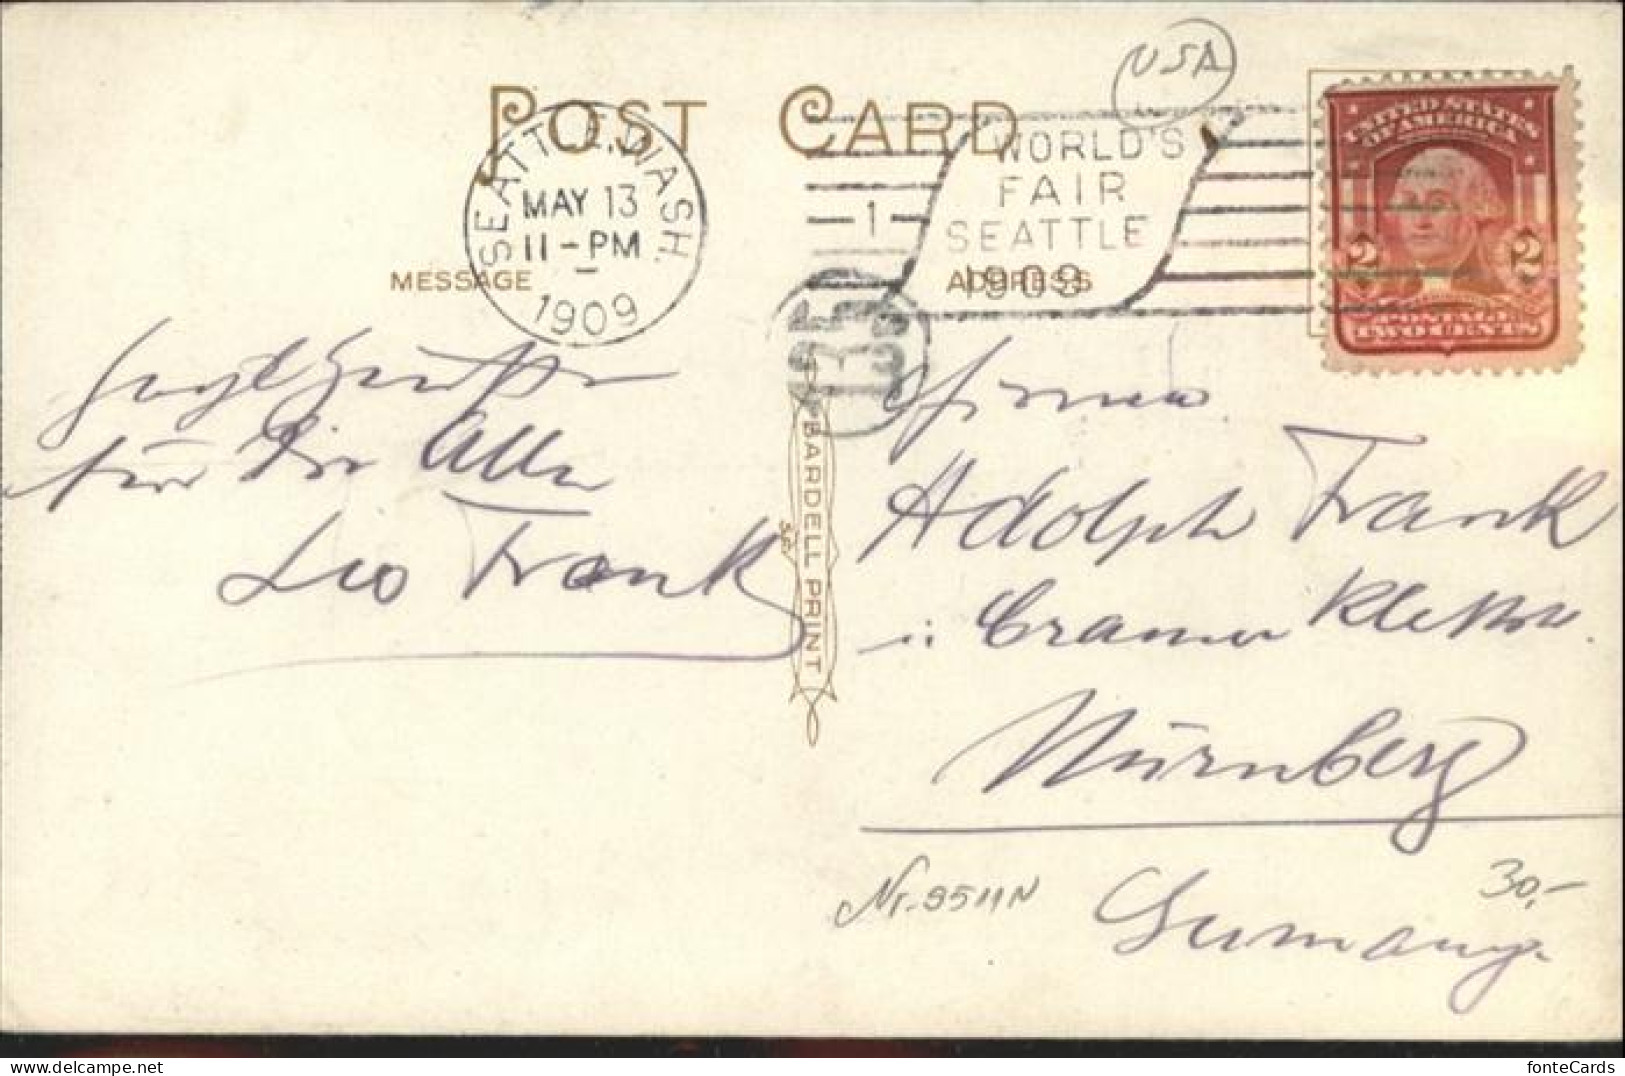 USA
UNITED STATES
OF AMERICA
2 2
POSTAGE
TWO CENTS
POST CARD
SEATTLE, WASH.
MAY 13
11-PM
1909
1
WORLD'S
FAIR
SEATTLE
1909
MESSAGE
ADDRESS
für die Alle
Leo Frank
135
BARDELL PRINT
Firma
Adolph Frank
Nürnberg
Germany
Nr. 9511N
30,-
fonteCards